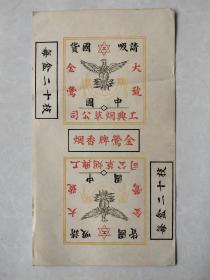 請吸國貨
大號
金鶯
中國
工典烟草公司
金鶯牌香烟
每盒二十枝
每盒二十枝
請吸國貨
大號
金鶯
中國
工典烟草公司